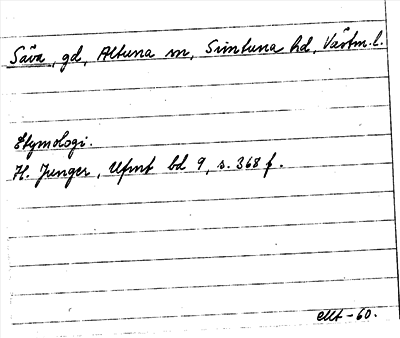 Säva, gd, Altuna sn, Simtuna hd, Västm. l.
Etymologi.
H. Junger, Ufmf bd 9, s. 368 f.
-60.